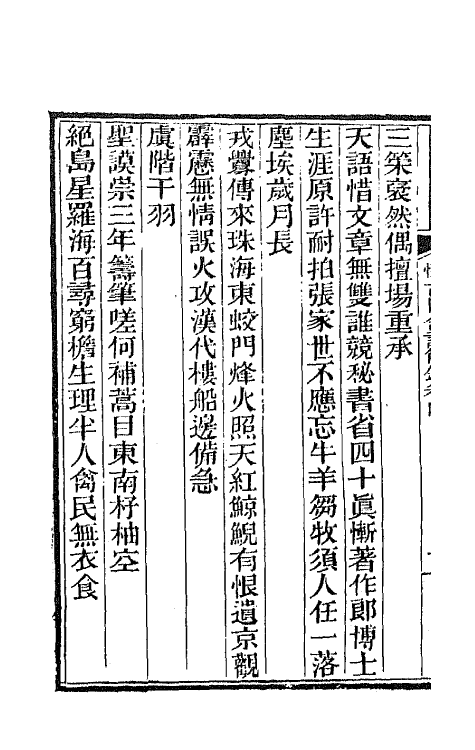 三䇿裒然偶擅場重承
天語惜文章無雙誰競秘書省四十眞慚著作郎博士
生涯原許耐拍張家世不應忘牛羊芻牧須人任一落
塵埃歲月長
戎釁傳來珠海東蛟門烽火照天紅鯨鯢有恨遺京觀
霹靂無情誤火攻漢代樓船邊備急
虞階干羽
聖謨崇三年籌筆嗟何補蒿目東南杼柚空
絕島星羅海百尋窮檐生理半人禽民無衣食